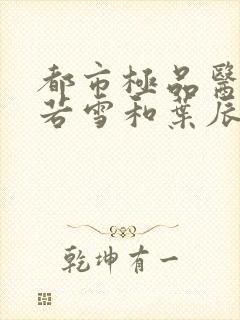 都市極品醫
若雪和葉辰
乾坤有一